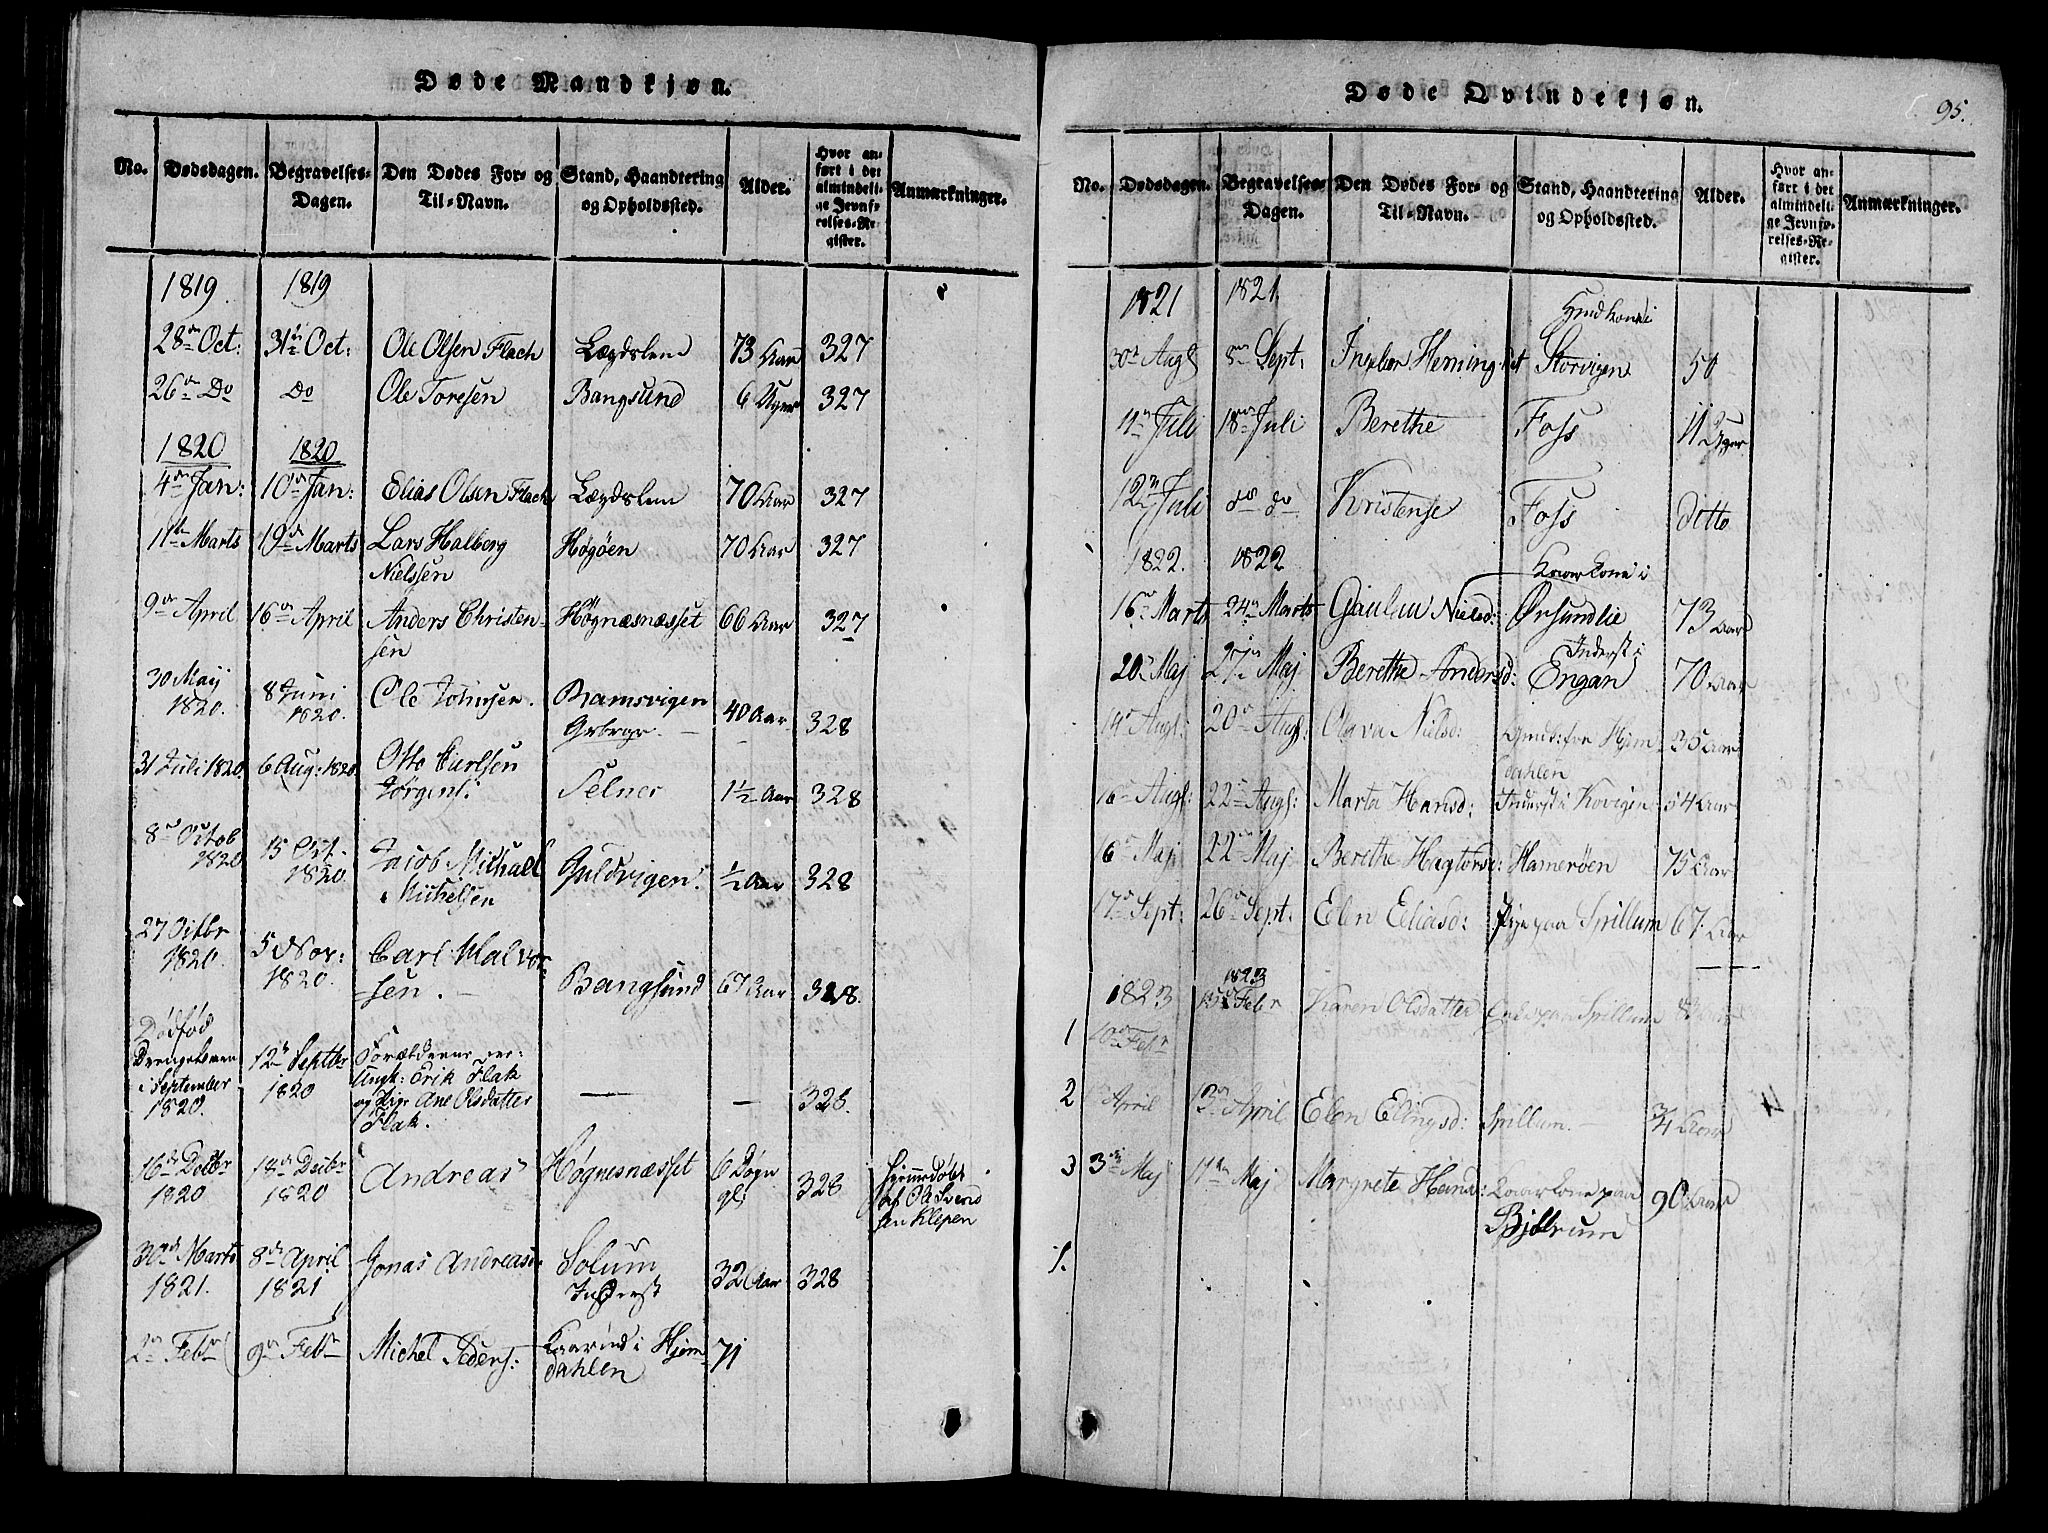 Døde Mandkjøn.
No. Dødsdagen. Begravelses-Dagen. Den Dødes For- og Til-Navn. Stand, Haandtering og Opholdssted. Alder. Hvor anført i det almindelige Jevnførelses-Register. Anmærkninger.
1819 1819
28de Oct: 31te Oct: Ole Olsen Flach Lægdslem 73 Aar 327
26de Do Do Ole Toresen Bangsund 6 Uger 327
1820 1820
4de Jan: 10de Jan: Elias Olsen Flach Lægdslem 70 Aar 327
11te Marts 19de Marts Lars Halberg Høgöen 70 Aar 327
Nielssen
9de April 16de April Anders Christen- Høgnæsnæsset 66 Aar 327
sen
30 Maij 8 Juni Ole Johnsen. Ramsvigen 40 Aar 328
1820. 1820.
31 Juli 1820. 6 Aug: 1820. Otto Carlsen Selnes 1½ Aar 328
Jörgens:
8de Octob 15 Oct. Jacob Michael Guldvigen. ½ Aar 328
1820 1820 Michelsen
27 Octbr 5 Nov: Carl Halvor- Bangsund 67 Aar 328.
1820. 1820. sen.
Dödföd
Drengebarn 12te Septbr Forældrene ere:
i September 1820 Ungk: Erik Flak
1820. og Pige Ane Olsdatter 328.
Flak.
16de Decbr 18de Decbr Andreas Høgnesnæsset 6 Døgn 328 hjemmedöbt
1820 1820 gl: af Ole Svend
sen Klepen
30de Marts 8de April Jonas Andreass: Solum 32 Aar 328
1821. 1821 Inderst
2de Febr 9de Febr Michel Peders: Kaarmd i Hjem- 71
dahlen
Døde Qvindekjøn.
95.
No. Dødsdagen. Begravelses-Dagen. Den Dødes For- og Til-Navn. Stand, Haandtering og Opholdssted. Alder. Hvor anført i det almindelige Jevnførelses-Register. Anmærkninger.
1821 1821 Gmdkone i
30te Augs 8de Sept. Ingebor Heming Storvigen 50
11te Juli 18de Juli Berethe Foss 11 Uger
12te Juli do do Kristense Foss ditto
1822. 1822 Kaarkone i
16de Marts 24de Marts Nielsd: Ørsundlie 73 Aar
Inderst i
20de Maj 27de Maj Berethe Andersd: Engan 70 Aar
14de Augs: 20de Augs: Olava Nielsd: Hjem- 35 Aar
dahlen
16de Augs: 22de Augs: Marta Hansd: Inderst i Kovigen 54 Aar
16de Maj 22de Maj Berethe Hagtorsd: Hamerøen 75 Aar
17de Sept: 26de Sept. Elen Eliasd: Pige paa Spillum 67 Aar
1823 1823
15de Febr Karen Olsdatter paa Spillum
1 10de Febr
2 April 13de April Elen Ellingsd: Spillum. ¾ Aar 4
3 3de Maj 11te Maj Margrete Hansd: Kaarkone paa 90 Aar
Bjøtrum
1.